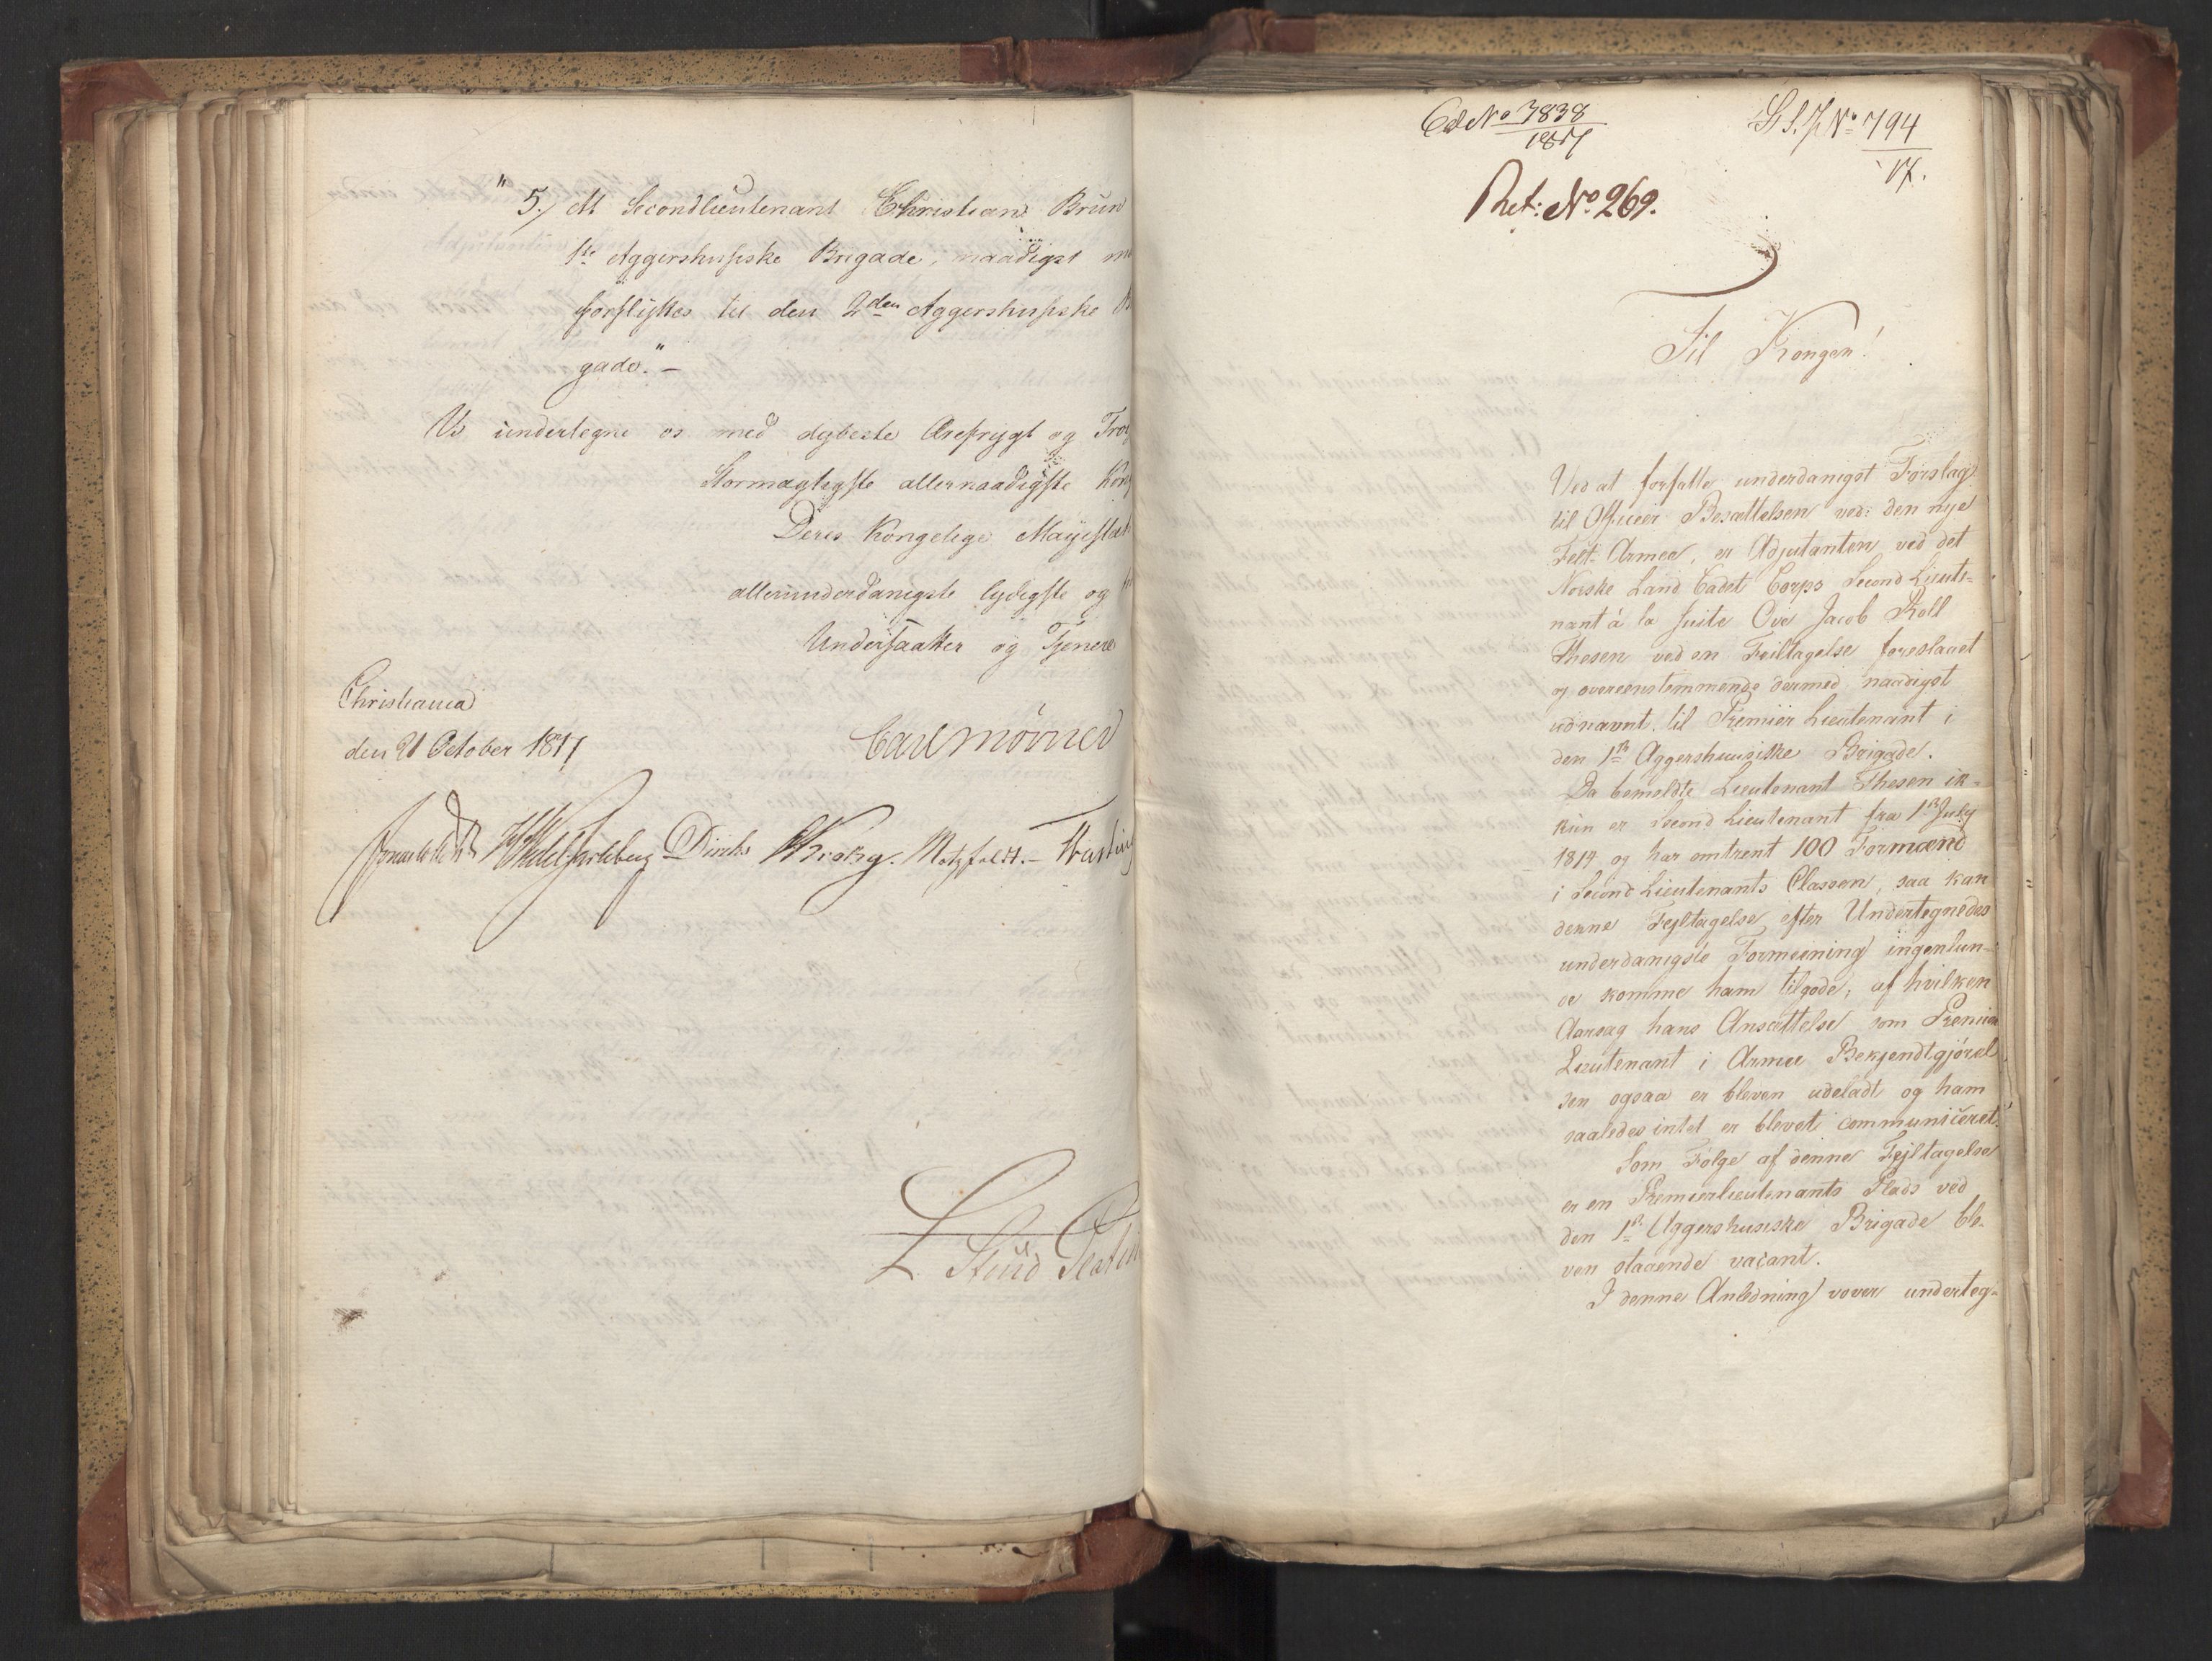 " 5./ At Secondlieutenant Christian Brun
1ste Aggershusiske Brigade, naadigst
forflyttes til den 2den Aggershusiske
gade." -
Vi undertegne os med dybeste Ærefrygt og
Stormægtigste allernaadigste
Deres Kongelige Mayestæt
allerunderdanigste lydigste og
Undersaatter og Tjenere
Christiania
den 21 October 1817
Carl Mörner
Diriks Krohg. Motzfeldt. -
Cal No 3838
1817
No 794
17.
Ret: No. 269.
Til Kongen!
Ved at forfatte underdanigst Forslag
til Officeer Besættelsen ved den nye
Felt-Armee, er Adjutanten ved det
Norske Land Cadet Corps Second Lieute-
nant á la suite Ove Jacob Roll
Thesen ved en Feiltagelse foreslaaet
og overeenstemmende dermed naadigst
udnævnt til Premier Lieutenant i
den 1ste Aggershuusiske Brigade.
Da bemeldte Lieutenant Thesen ik-
kun er Second Lieutenant fra 1ste July
1814 og har omtrent 100 Formænd
i Second Lieutenants Classen, saa kan
denne Fejltagelse efter Undertegnedes
underdanigste Formeening ingenlun-
de komme ham tilgode, af hvilken
Aarsag hans Ansættelse som Premier
Lieutenant i Armee Bekjendtgjørel
sen ogsaa er bleven udeladt og ham
saaledes intet er blevet communiceret.
Som Følge af denne Fejltagelse
er en Premierlieutenants Plads ved
den 1ste Aggershusiske Brigade ble-
ven staaende vacant.
I denne Anledning vover underteg-